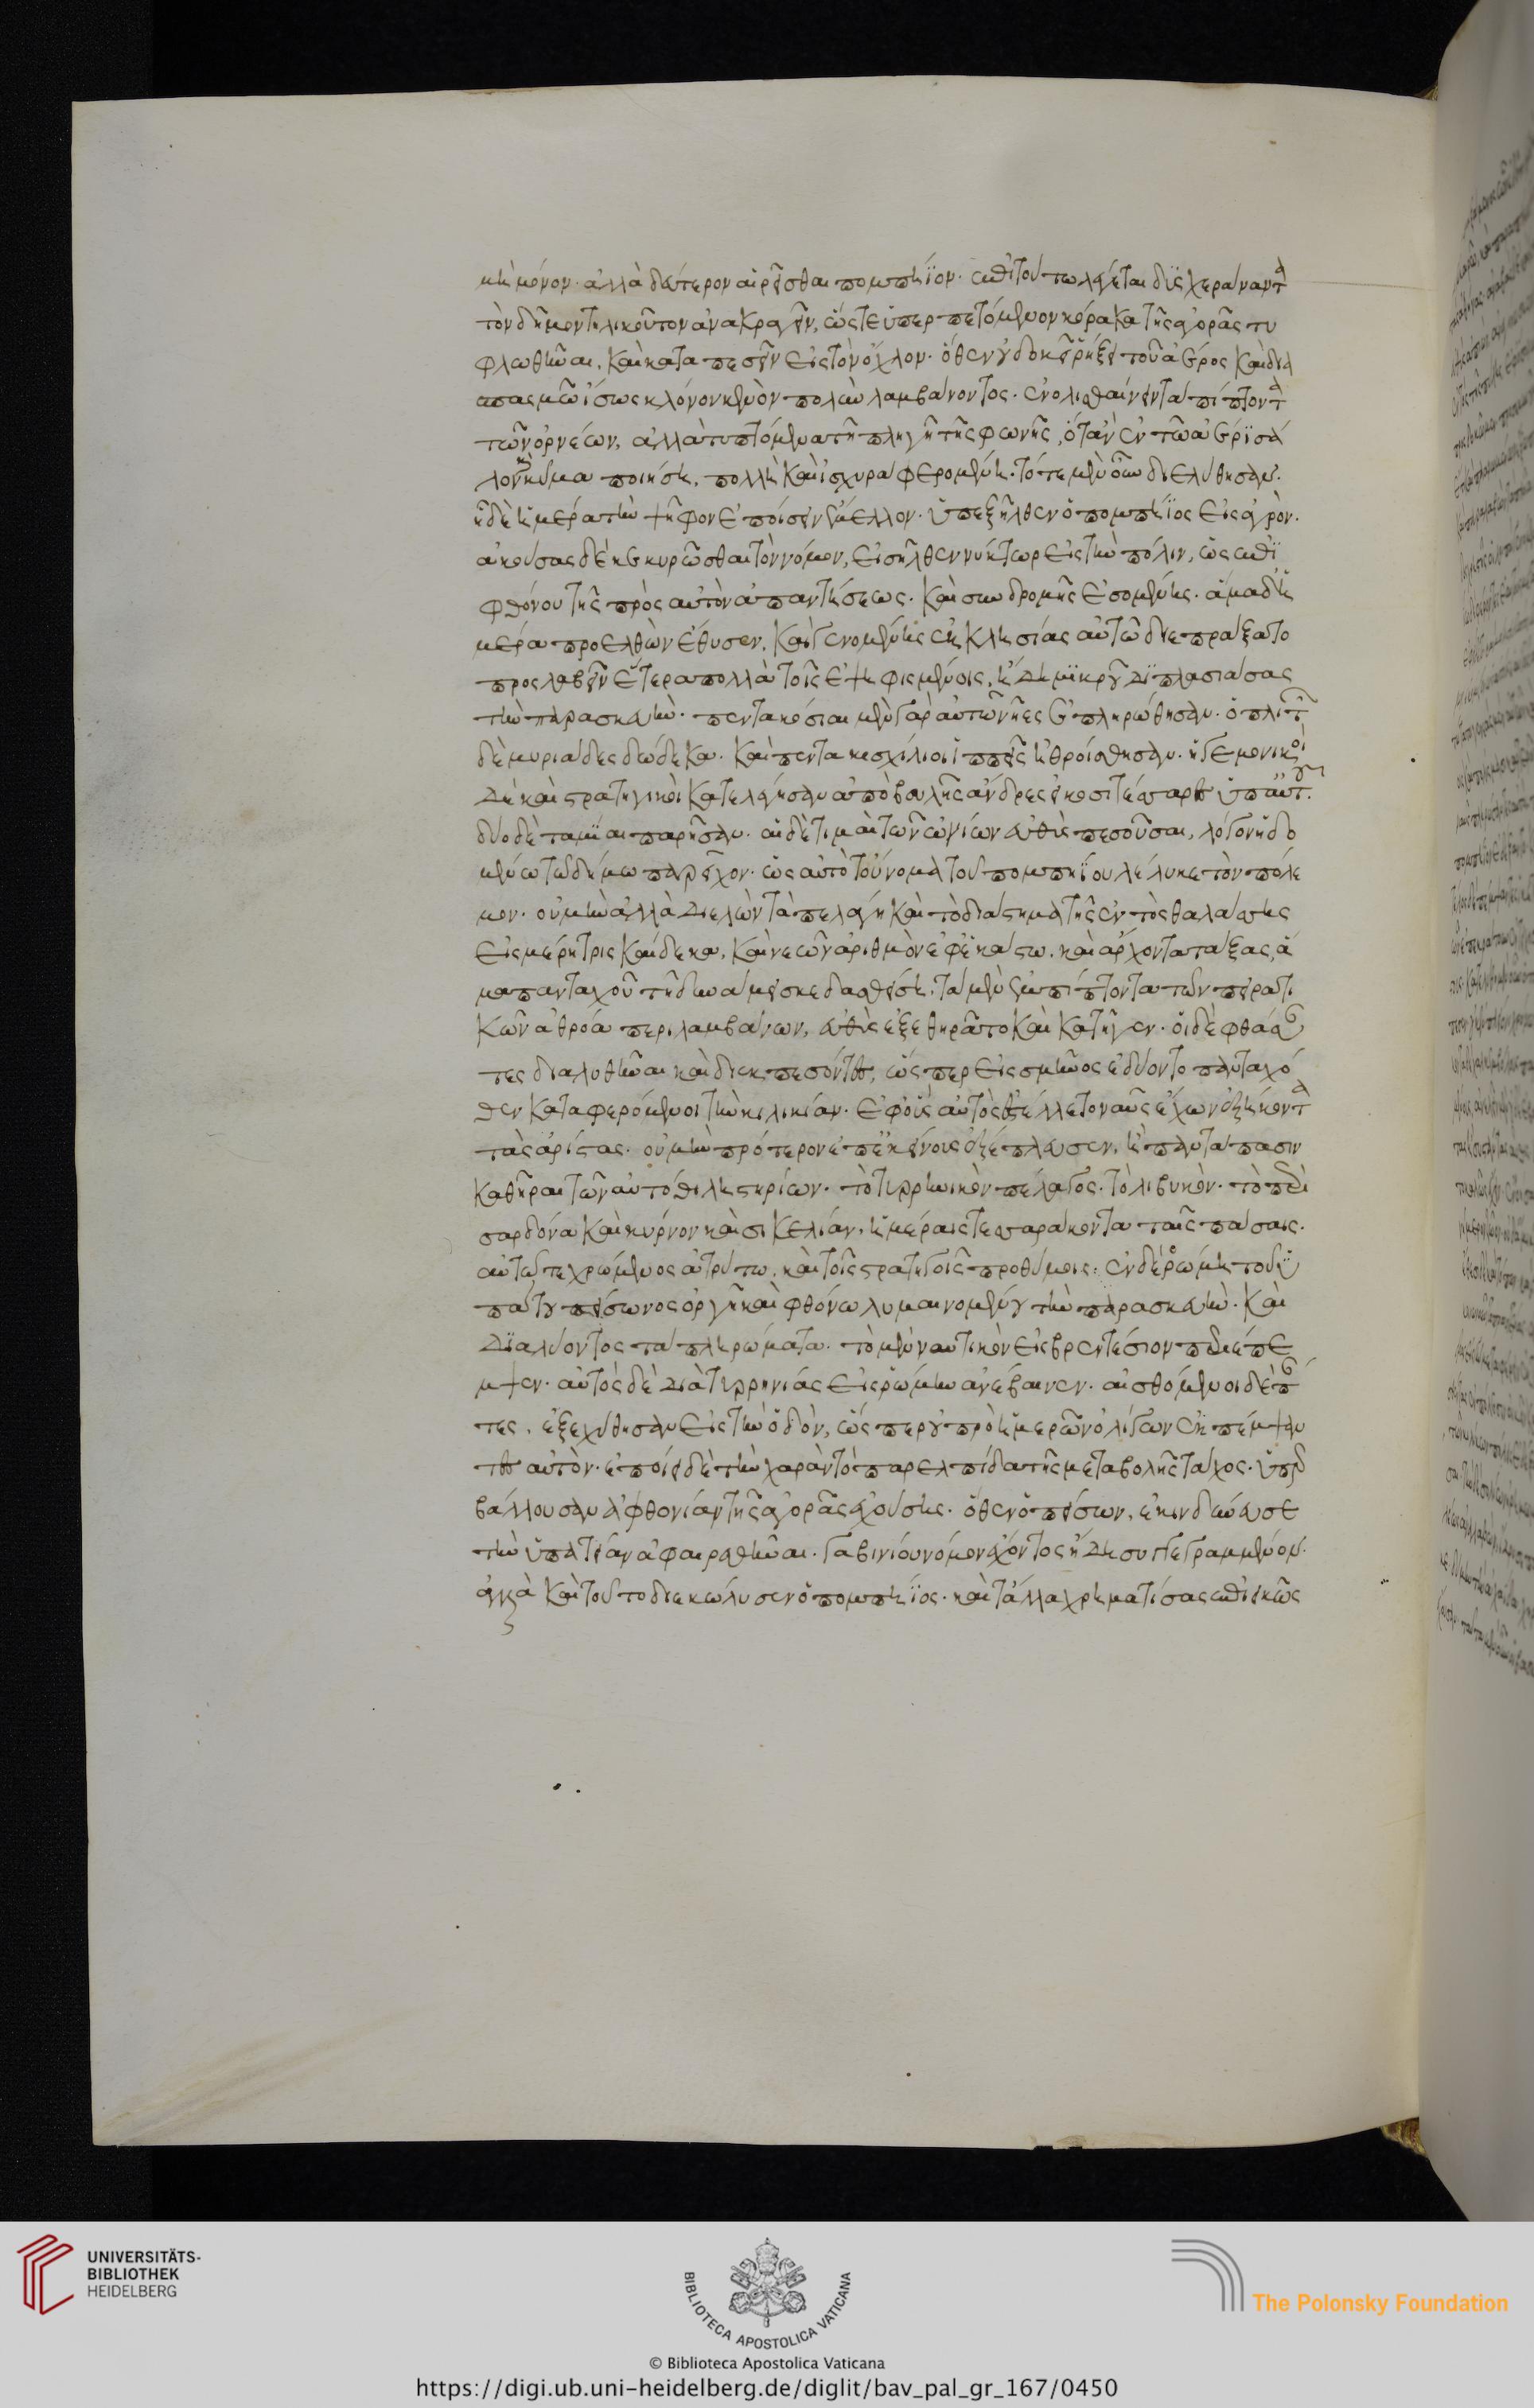 μὴ μόνον· ἀλλὰ δεύτερον αἱρεῖσθαι πομπήϊον· ἐπὶ τούτω λέγεται δϋσχεράναντα
τὸν δῆμον τηλικοῦτον ἀνακραγεῖν, ὥστε ὑπερπετόμενον κόρακα τῆς ἀγορᾶς τυ
φλωθῆναι, καὶ καταπεσεῖν εἰς τὸν ὄχλον· ὅθεν οὐ δοκεῖ ῥήξει τοῦ ἀέρος καὶ δια
σπασμῶ ἴσως κλόνον κενὸν πολὺν λαμβάνοντος· ἐνολισθαίνειν τὰ πίπτοντα
τῶν ὀρνέων, ἀλλὰ τυπτόμενα τῆ πληγῆ τῆς φωνῆς, ὅταν ἐν τῶ ἀέρϊ σά
λον κῦμα ποιήση, πολλὴ καὶ ἰσχυρὰ φερομένη. τότε μὲν οὖν διελύθησαν.
ἧ δὲ ἡμέρα τὴν ψῆφον ἐποίσειν ἔμελλον· ὑπεξῆλθεν ὁ πομπήϊος εἰς ἀγρόν.
ἀκούσας δὲ κεκυρῶσθαι τὸν νόμον, εἰσῆλθεν νύκτωρ εἰς τὴν πόλιν, ὡς ἐπϊ
φθόνου τῆς πρὸς αὐτὸν ἀπαντήσεως. καὶ συνδρομῆς ἐσομένης. ἅμα δ' ἡ
μέρα προελθὼν ἔθυσεν, καὶ γενομένης ἐκκλησίας αὐτῶ διεπράξατο
προςλαβεῖν ἕτερα πολλὰ τοῖς ἐψηφισμένοις, ἤδη μϊκροῦ δϊπλασιάσας
τὴν παρασκευήν. πεντακόσιαι μὲν γὰρ αὐτῶ νῆες ἐπληρώθησαν· ὁπλιτῶν
δὲ μυριάδες δώδεκα. καὶ πεντακισχίλιοι ἱππεῖς ἠθροίσθησαν. ἡγεμονικοὶ
δὲ καὶ στρατηγικοὶ κατελέγησαν ἀπὸ βουλῆς ἄνδρες εἰκοσιτέσσαρες ὑπ' αὐτοῦ.
δύο δὲ ταμίαι παρῆσαν. αἱ δὲ τιμαὶ τῶν ὠνίων εὐθὺς πεσοῦσαι, λόγον ἡδο
μένω τῶ δήμω παρεῖχον· ὡς αὐτὸ τοὔνομα τοῦ πομπηΐου λέλυκε τὸν πόλε
μον. οὐ μὴν ἀλλὰ διελὼν τὰ πελάγη καὶ τὸ διάστημα τῆς ἐντὸς θαλάσσης
εἰς μέρη τρισκαίδεκα, καὶ νεῶν ἀριθμὸν ἐφ' ἑκάστω, καὶ ἄρχοντα τάξας, ἅ
μα πανταχοῦ τῆ δυνάμει σκεδασθείση, τὰ μὲν ἐμπίπτοντα τῶν πειρατι
κῶν ἀθρόα περιλαμβάνων, εὐθὺς ἐξεθηρᾶτο καὶ κατῆγεν. οἱ δὲ φθάσαν
τες διαλυθῆναι καὶ διεκπεσόντες, ὥσπερ εἰς σμῆνος ἐδύοντο πανταχό
θεν καταφερόμενοι τὴν κιλικίαν. ἐφ' οὓς αὐτὸς ἐστέλλετο ναῦς ἔχων ἑξήκοντα
τὰς ἀρίστας. οὐ μὴν πρότερον ἐπ' ἐκείνους ἐξέπλευσεν, ἢ παντάπασιν
καθῆραι τῶν αὐτόθι ληστηρίων. τὸ τυρρηνικὸν πέλαγος. τὸ λιβυκόν. τὸ περὶ
σαρδόνα καὶ κύρνον καὶ σικελίαν, ἡμέραις τεσσαράκοντα ταῖς πάσαις.
αὑτῶ τε χρώμενος ἀτρύτω. καὶ τοῖς στρατηγοῖς προθύμοις. ἐν δὲ ῥώμη τοῦ ὑ
πάτου πείσωνος ὀργῆ καὶ φθόνω λυμαινομένου τὴν παρασκευήν. καὶ
δϊαλύοντος τὰ πληρώματα. τὸ μὲν ναυτικὸν εἰς βρεντέσιον περιέπε
μψεν. αὐτὸς δὲ διὰ τυρρηνίας εἰς ῥώμην ἀνέβαινεν. αἰσθόμενοι δὲ πάν
τες, ἐξεχύθησαν εἰς τὴν ὁδόν, ὥσπερ οὐ πρὸ ἡμερῶν ὀλίγων ἐκπέμψαν
τες αὐτόν. ἐποίει δὲ τὴν χαρὰν τὸ παρ' ἐλπίδα τῆς μεταβολῆς τάχος. ὑπερ
βάλλουσαν ἀφθονίαν τῆς ἀγορᾶς ἐχούσης. ὅθεν ὁ πείσων, ἐκινδύνευσε
τὴν ὑπατείαν ἀφαιρεθῆναι. γαβινίου νόμον ἔχοντος ἤδη συγγεγραμμένον.
ἀλλὰ καὶ τοῦτο διεκώλυσεν ὁ πομπήϊος. καὶ τἄλλα χρηματίσας ἐπιεικῶς
UNIVERSITÄTS-
BIBLIOTHEK
HEIDELBERG
BIBLIOTECA APOSTOLICA VATICANA
The Polonsky Foundation
© Biblioteca Apostolica Vaticana
https://digi.ub.uni-heidelberg.de/diglit/bav_pal_gr_167/0450